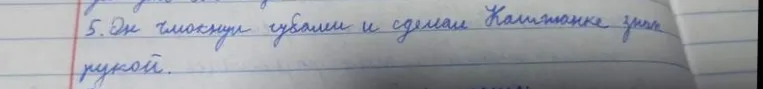 5. Он чмокнул губами и сделал Каштанке знак
рукой.